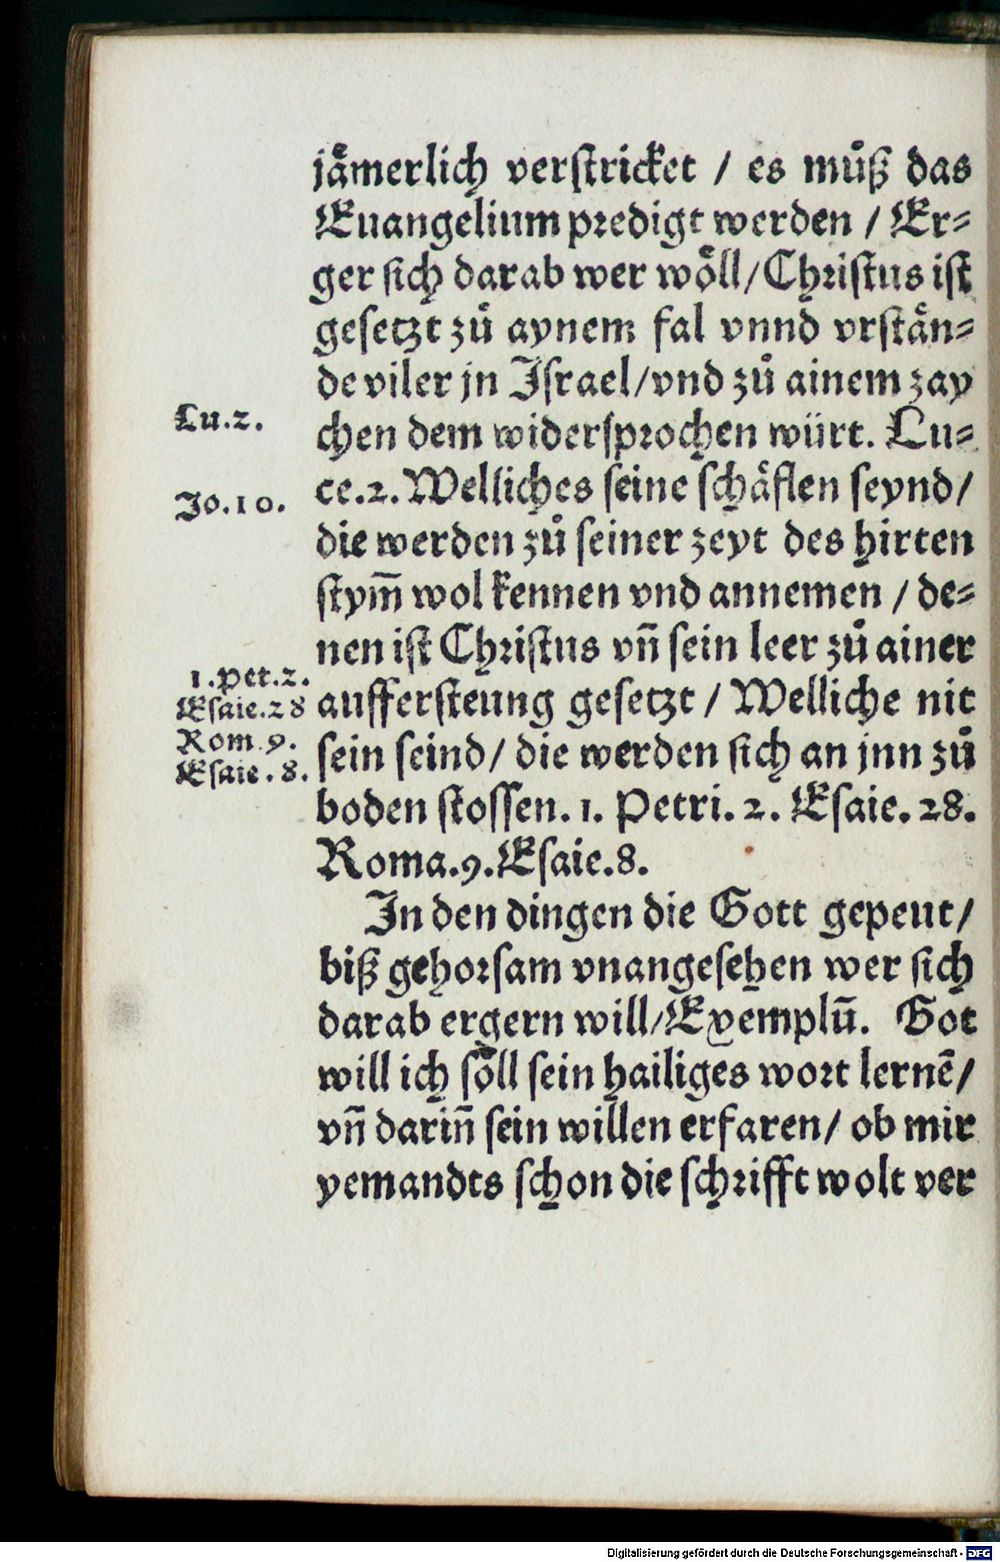 jaͤmerlich verſtricket / es muͦß das
Euangelium predigt werden / Er⸗
ger ſich darab wer woͤll / Chriſtus iſt
geſetzt zuͦ aynem fal vnnd vrſtaͤn⸗
de viler jn Iſrael / vnd zuͦ ainem zay
Lu.2.
chen dem widerſprochen würt. Lu⸗
Jo.10.
ce.2. Welliches ſeine ſchaͤflen ſeynd /
die werden zuͦ ſeiner zeyt des hirten
ſtym̄ wol kennen vnd annemen / de⸗
nen iſt Chriſtus vn̄ ſein leer zuͦ ainer
1.Pet.2.
Eſaie.28
auffer­ſteung geſetzt / Welliche nit
Rom.9.
ſein ſeind / die werden ſich an jnn zuͦ
Eſaie.8.
boden ſtoſſen. 1. Petri. 2. Eſaie. 28.
Roma.9. Eſaie.8.
In den dingen die Gott gepeut /
biß gehorſam vnangeſehen wer ſich
darab ergern will / Exemplū. Got
will ich ſoͤll ſein hailiges wort lernē /
vn̄ darin̄ ſein willen erfaren / ob mir
yemandts ſchon die ſchrifft wolt ver
Digitalisierung gefördert durch die Deutsche Forschungsgemeinschaft - DFG